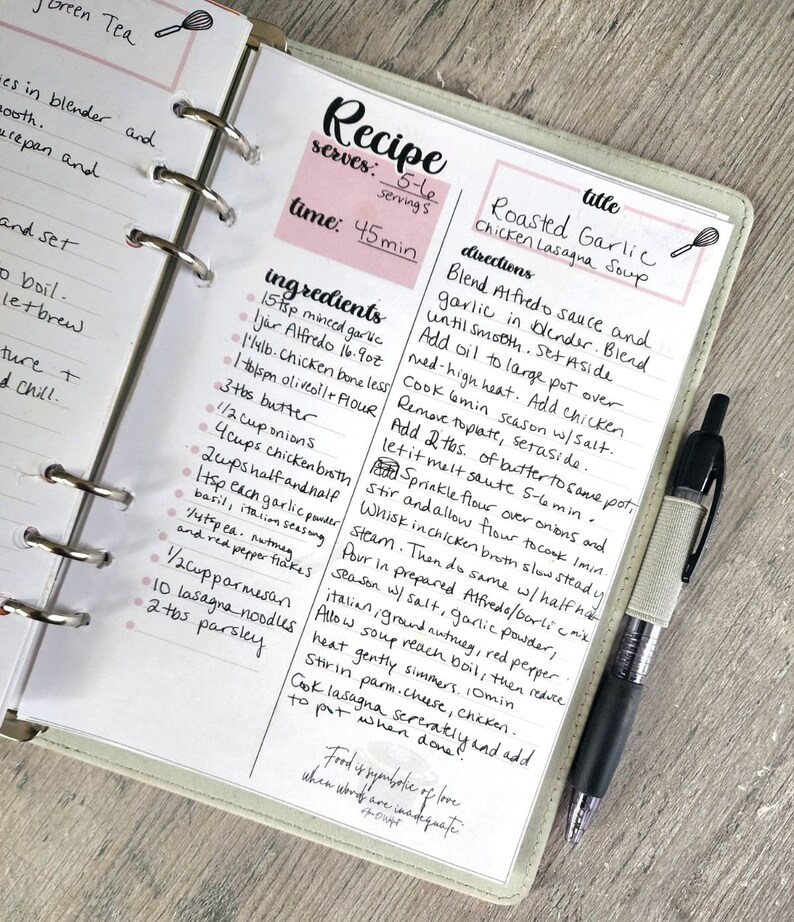 Green Tea
ies in blender and
ooth.
ucepan and
and set
o boil.
let brew
ture +
d chill.
Recipe
serves: 5-6
servings
time: 45min
ingredients
15tsp minced garlic
1jar Alfredo 16.9oz
1 1/4 lb. chicken boneless
1-tblspn olive oil + FLOUR
3tbs butter
1/2 cup onions
4cups chicken broth
2cups half and half
1tsp each garlic powder
basil, italian seasong
1/4 tsp ea. nutmeg
and red pepper flakes
1/2 cup parmesan
10 lasagna noodles
2 tbs parsley
title
Roasted Garlic
Chicken Lasagna Soup
directions
Blend Alfredo sauce and
garlic in blender. Blend
until smooth. Set Aside
Add oil to large pot over
med-high heat. Add chicken
Cook 6min season w/ salt.
Remove to plate, set aside.
Add 2 tbs. of butter to same pot,
let it melt saute 5-6 min.
Sprinkle flour over onions and
stir and allow flour to cook 1min.
Whisk in chicken broth slow steady
steam. Then do same w/ half half
Pour in prepared Alfredo/Garlic mix
season w/ salt, garlic powder,
italian, ground nutmeg, red pepper.
Allow soup reach boil, then reduce
heat gently simmers. 10min
Stir in parm. cheese, chicken.
Cook lasagna seperately and add
to pot when done!
Food is symbolic of love
when words are inadequate